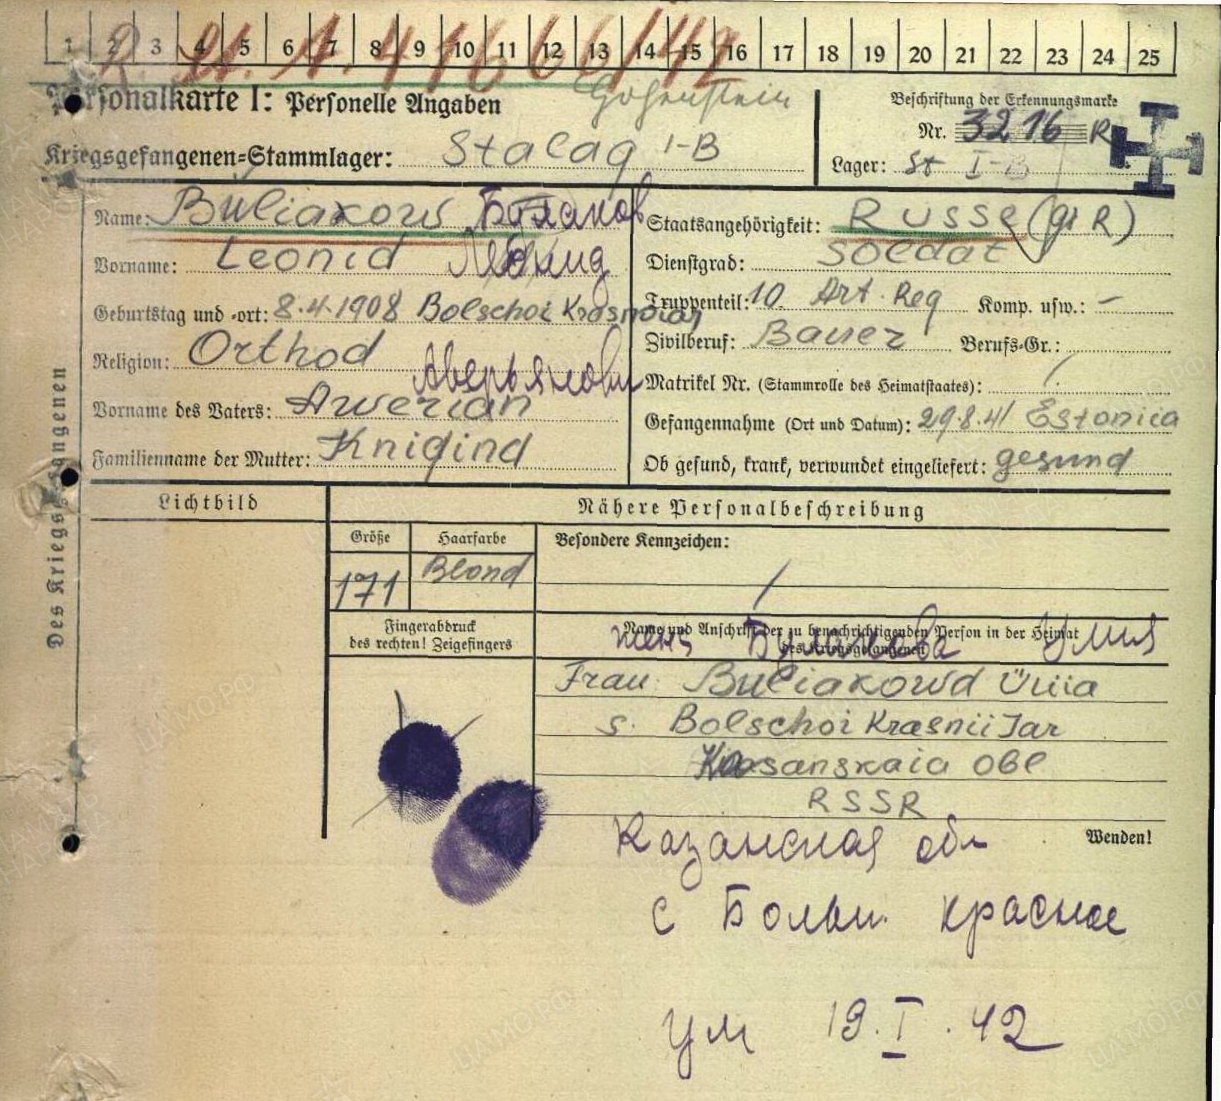 1 2 3 4 5 6 7 8 9 10 11 12 13 14 15 16 17 18 19 20 21 22 23 24 25
Personalkarte I: Personelle Angaben
Beschriftung der Erkennungsmarke
Nr. 3216 R
Kriegsgefangenen-Stammlager: Stalag I-B
Lager: St I-B
Name: Buliakow Булаков
Vorname: Leonid Леонид
Geburtstag und -ort: 8.4.1908 Bolschoi
Religion: Orthod
Аверьянович
Vorname des Vaters: Awerian
Familienname der Mutter: Knigind
Staatsangehörigkeit: Russe (gr R)
Dienstgrad: Soldat
Truppenteil: 10 Art. Reg Komp. usw.: -
Zivilberuf: Bauer Berufs-Gr.:
Matrikel Nr. (Stammrolle des Heimatstaates): /
Gefangennahme (Ort und Datum): 29.8.41 Estonica
Ob gesund, krank, verwundet eingeliefert: gesund
Des Kriegsgefangenen
Lichtbild
Nähere Personalbeschreibung
Größe
Haarfarbe
Besondere Kennzeichen:
171
Blond
/
Fingerabdruck
des rechten! Zeigefingers
Name und Anschrift der zu benachrichtigenden Person in der Heimat
des Kriegsgefangenen
жена Булакова
Frau Buliakowa
s. Bolschoi Krasnii Jar
Kasanskaia obl
RSSR
Wenden!
Казанская обл
с Больш. красное
ум 19.I.42
ЦАМО РФ